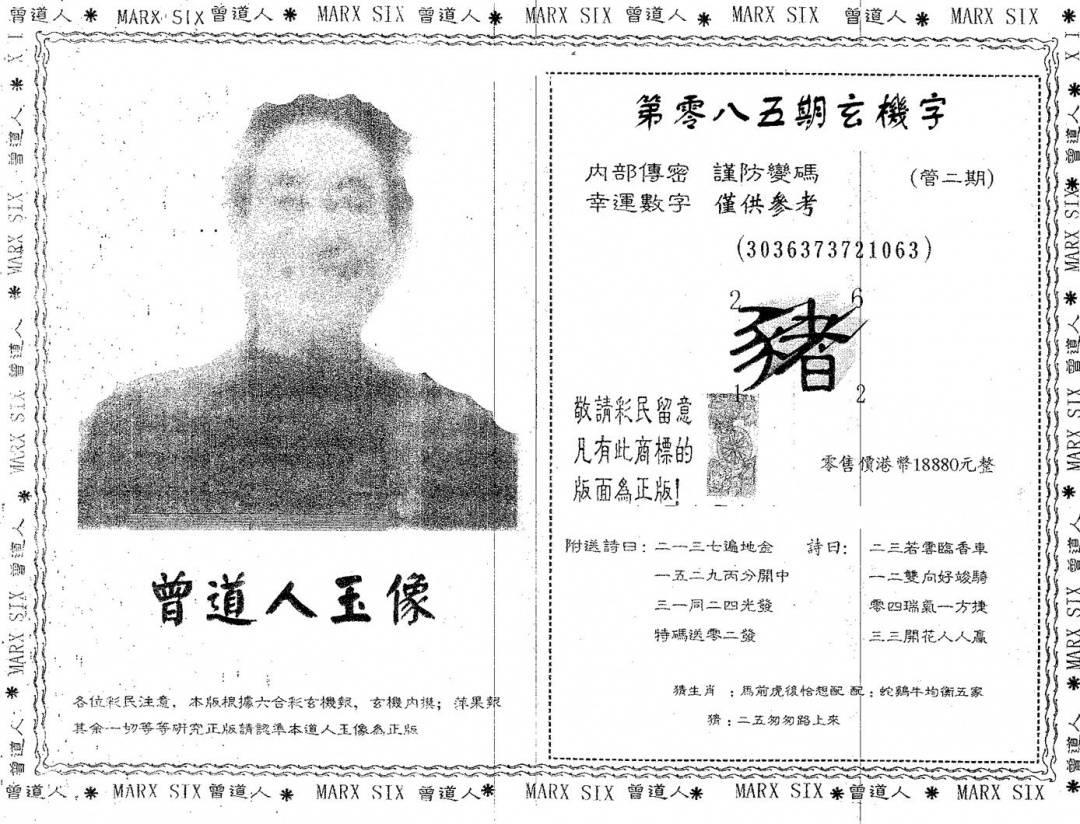 曾道人 * MARX SIX 曾道人 * MARX SIX 曾道人 * MARX SIX 曾道人 * MARX SIX 曾道人 * MARX SIX *
第零八五期玄機字
內部傳密 謹防變碼 (管二期)
幸運數字 僅供參考
(3036373721063)
2 6
豬
1 2
敬請彩民留意
凡有此商標的
版面為正版!
零售價港幣18880元整
附送詩曰：二一三七遍地金
一五二九丙分開中
三一同二四光發
特碼送零二發
詩曰：二三若雲臨香車
一二雙向好竣騎
零四瑞氣一方捷
三三開花人人贏
猜生肖：馬前虎後恰想配 配：蛇鷄牛均衡五家
猜：二五匆匆路上來
曾道人玉像
各位彩民注意，本版根據六合彩玄機報，玄機內摸；萍果報
其余一切等等研究正版請認準本道人玉像為正版
曾道人 * MARX SIX 曾道人 * MARX SIX 曾道人 * MARX SIX 曾道人 * MARX SIX 曾道人 * MARX SIX *